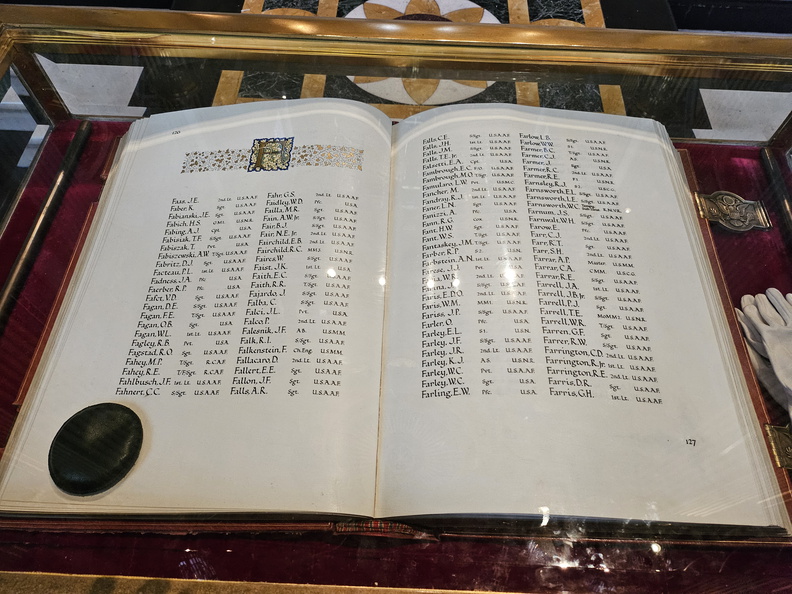 126
F
Faas, J.E. 2nd. Lt. U.S.A.A.F.
Faber, K. Sgt. U.S.A.A.F.
Fabianski, J.E. Sgt. U.S.A.A.F.
Fabich, H.S. U.S.N.R.
Fabing, A.J. Cpl. U.S.A.
Fabisiak, T.F. S/Sgt. U.S.A.A.F.
Fabiszak, T. Pvt. U.S.A.
Fabiszewski, A.W. T/Sgt. U.S.A.A.F.
Fabritz, D.J. Sgt. U.S.A.A.F.
Facteau, P.L. 1st. Lt. U.S.A.A.F.
Fadness, J.A. Pfc. U.S.A.
Faerber, R.P. Pfc. U.S.A.
Fafet, V.D. Sgt. U.S.A.A.F.
Fagan, D.E. S/Sgt. U.S.A.A.F.
Fagan, F.E. T/Sgt. U.S.A.A.F.
Fagan, O.B. Sgt. U.S.A.
Fagan, W.L. 1st. Lt. U.S.A.A.F.
Fagley, R.B. Pvt. U.S.A.
Fagstad, R.O. Sgt. U.S.A.A.F.
Fahey, M.P. T/Sgt. R.C.A.F.
Fahey, R.E. T/F.Sgt. R.C.A.F.
Fahlbusch, J.F. 1st. Lt. U.S.A.A.F.
Fahnert, C.C. S/Sgt. U.S.A.A.F.
Fahr, G.S. 2nd. Lt. U.S.A.A.F.
Faidley, W.D. Pfc. U.S.A.
Failla, M.R. Sgt. U.S.A.A.F.
Fain, A.W. Jr. S/Sgt. U.S.A.A.F.
Fair, B.J. S/Sgt. U.S.A.A.F.
Fair, N.E. Jr. 2nd. Lt. U.S.A.A.F.
Fairchild, E.B. 2nd. Lt. U.S.A.A.F.
Fairchild, R.C. U.S.N.R.
Faires, W. S/Sgt. U.S.A.A.F.
Faist, J.K. 1st. Lt. U.S.A.A.F.
Faith, E.C. S/Sgt. U.S.A.A.F.
Faith, R.R. T/Sgt. U.S.A.A.F.
Fajardo, J. S/Sgt. U.S.A.A.F.
Falba, C. S/Sgt. U.S.A.A.F.
Falci, J.L. Pvt. U.S.A.
Falco, P. 2nd. Lt. U.S.A.A.F.
Falesnik, J.F. A.B. U.S.M.M.
Falk, R.L. S/Sgt. U.S.A.A.F.
Falkenstein, F. Ch.Eng. U.S.M.M.
Fallacaro, D. 2nd. Lt. U.S.A.A.F.
Fallert, E.E. Sgt. U.S.A.A.F.
Fallon, J.F. Sgt. U.S.A.A.F.
Falls, A.R. Sgt. U.S.A.A.F.
Falls, C.E. S/Sgt. U.S.A.A.F.
Falls, J.H. 1st. Lt. U.S.A.A.F.
Falls, J.M. S/Sgt. U.S.A.A.F.
Falls, T.E. Jr. 2nd. Lt. U.S.A.A.F.
Falzetti, E.A. Cpl. U.S.A.
Fambrough, E.C. F/O U.S.A.A.F.
Fambrough, M.O. T/Sgt. U.S.A.A.F.
Famularo, L.W. Pvt. U.S.M.C.
Fancher, M. 2nd. Lt. U.S.A.A.F.
Fandray, R.J. 1st. Lt. U.S.A.A.F.
Faner, L.N. Sgt. U.S.A.A.F.
Fanizzi, A. Pfc. U.S.A.
Fann, R.G. Cox. U.S.N.R.
Fant, H.W. Sgt. U.S.A.A.F.
Fant, W.S. T/Sgt. U.S.A.A.F.
Fantaskey, J.M. T/Sgt. U.S.A.A.F.
Farber, R.P. S.1. U.S.N.R.
Farbstein, A.N. 1st. Lt. U.S.A.A.F.
Farese, J.J. Pvt. U.S.A.
W.R. U.S.A.A.F.
Farina, J. U.S.A.A.F.
Faris, E.D.O. 2nd. Lt. U.S.A.A.F.
Faris, W.M. MM1. U.S.N.R.
Fariss, J.P. S/Sgt. U.S.A.A.F.
Farler, O. Pfc. U.S.A.
Farley, E.L. S.1. U.S.N.
Farley, J.F. S/Sgt. U.S.A.A.F.
Farley, J.R. 2nd. Lt. U.S.A.A.F.
Farley, K.J. A.S. U.S.N.R.
Farley, W.C. Pvt. U.S.A.A.F.
Farley, W.C. Sgt. U.S.A.
Farling, E.W. Pfc. U.S.A.
Farlow, L.B. S/Sgt. U.S.A.A.F.
Farlow, W.W. S.1. U.S.N.R.
Farmer, B.C. T/Sgt. U.S.A.A.F.
Farmer, C.J. A.S. U.S.N.
Farmer, J. Sgt. U.S.A.
Farmer, R.C. 2nd. Lt. U.S.A.A.F.
Farmer, R.E. F.1. U.S.N.R.
Farnsley, R.J. S.1. U.S.C.G.
Farnsworth, E.L. S/Sgt. U.S.A.A.F.
Farnsworth, L.E. S/Sgt. U.S.A.A.F.
Farnsworth, W.C. R.N.V.R.
Farnum, J.S. S/Sgt. U.S.A.A.F.
Farnwalt, W.H. S/Sgt. U.S.A.A.F.
Farow, E. Pfc. U.S.A.
Farr, C.J. 2nd. Lt. U.S.A.A.F.
Farr, K.T. Sgt. U.S.A.A.F.
Farr, S.H. 2nd. Lt. U.S.A.A.F.
Farrar, A.P. Master U.S.M.M.
Farrar, C.A. CMM. U.S.C.G.
Farrar, R.E. S/Sgt. U.S.A.A.F.
Farrell, J.A. 1st. Lt. U.S.A.A.F.
Farrell, J.B. Jr. S/Sgt. U.S.A.A.F.
Farrell, P.J. Sgt. U.S.A.A.F.
Farrell, T.E. MoMM1. U.S.N.R.
Farrell, W.R. T/Sgt. U.S.A.A.F.
Farren, G.F. Sgt. U.S.A.A.F.
Farrer, R.W. S/Sgt. U.S.A.A.F.
Farrington, C.D. 2nd. Lt. U.S.A.A.F.
Farrington, R. Jr. 1st. Lt. U.S.A.A.F.
Farrington, R.E. 2nd. Lt. U.S.A.A.F.
Farris, D.R. Sgt. U.S.A.A.F.
Farris, G.H. 1st. Lt. U.S.A.A.F.
127